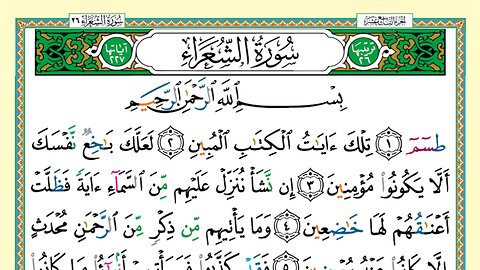 سُورَةُ الشُّعَرَاءِ ٢٦
آيَاتُهَا ٢٢٧ سُورَةُ الشُّعَرَاءِ تَرْتِيبُهَا ٢٦
بِسْمِ اللَّهِ الرَّحْمَٰنِ الرَّحِيمِ
طسٓمٓ ١ تِلْكَ ءَايَاتُ الْكِتَابِ الْمُبِينِ ٢ لَعَلَّكَ بَاخِعٌ نَّفْسَكَ
أَلَّا يَكُونُوا مُؤْمِنِينَ ٣ إِن نَّشَأْ نُنَزِّلْ عَلَيْهِم مِّنَ السَّمَآءِ ءَايَةً فَظَلَّتْ
أَعْنَاقُهُمْ لَهَا خَاضِعِينَ ٤ وَمَا يَأْتِيهِم مِّن ذِكْرٍ مِّنَ الرَّحْمَانِ مُحْدَثٍ